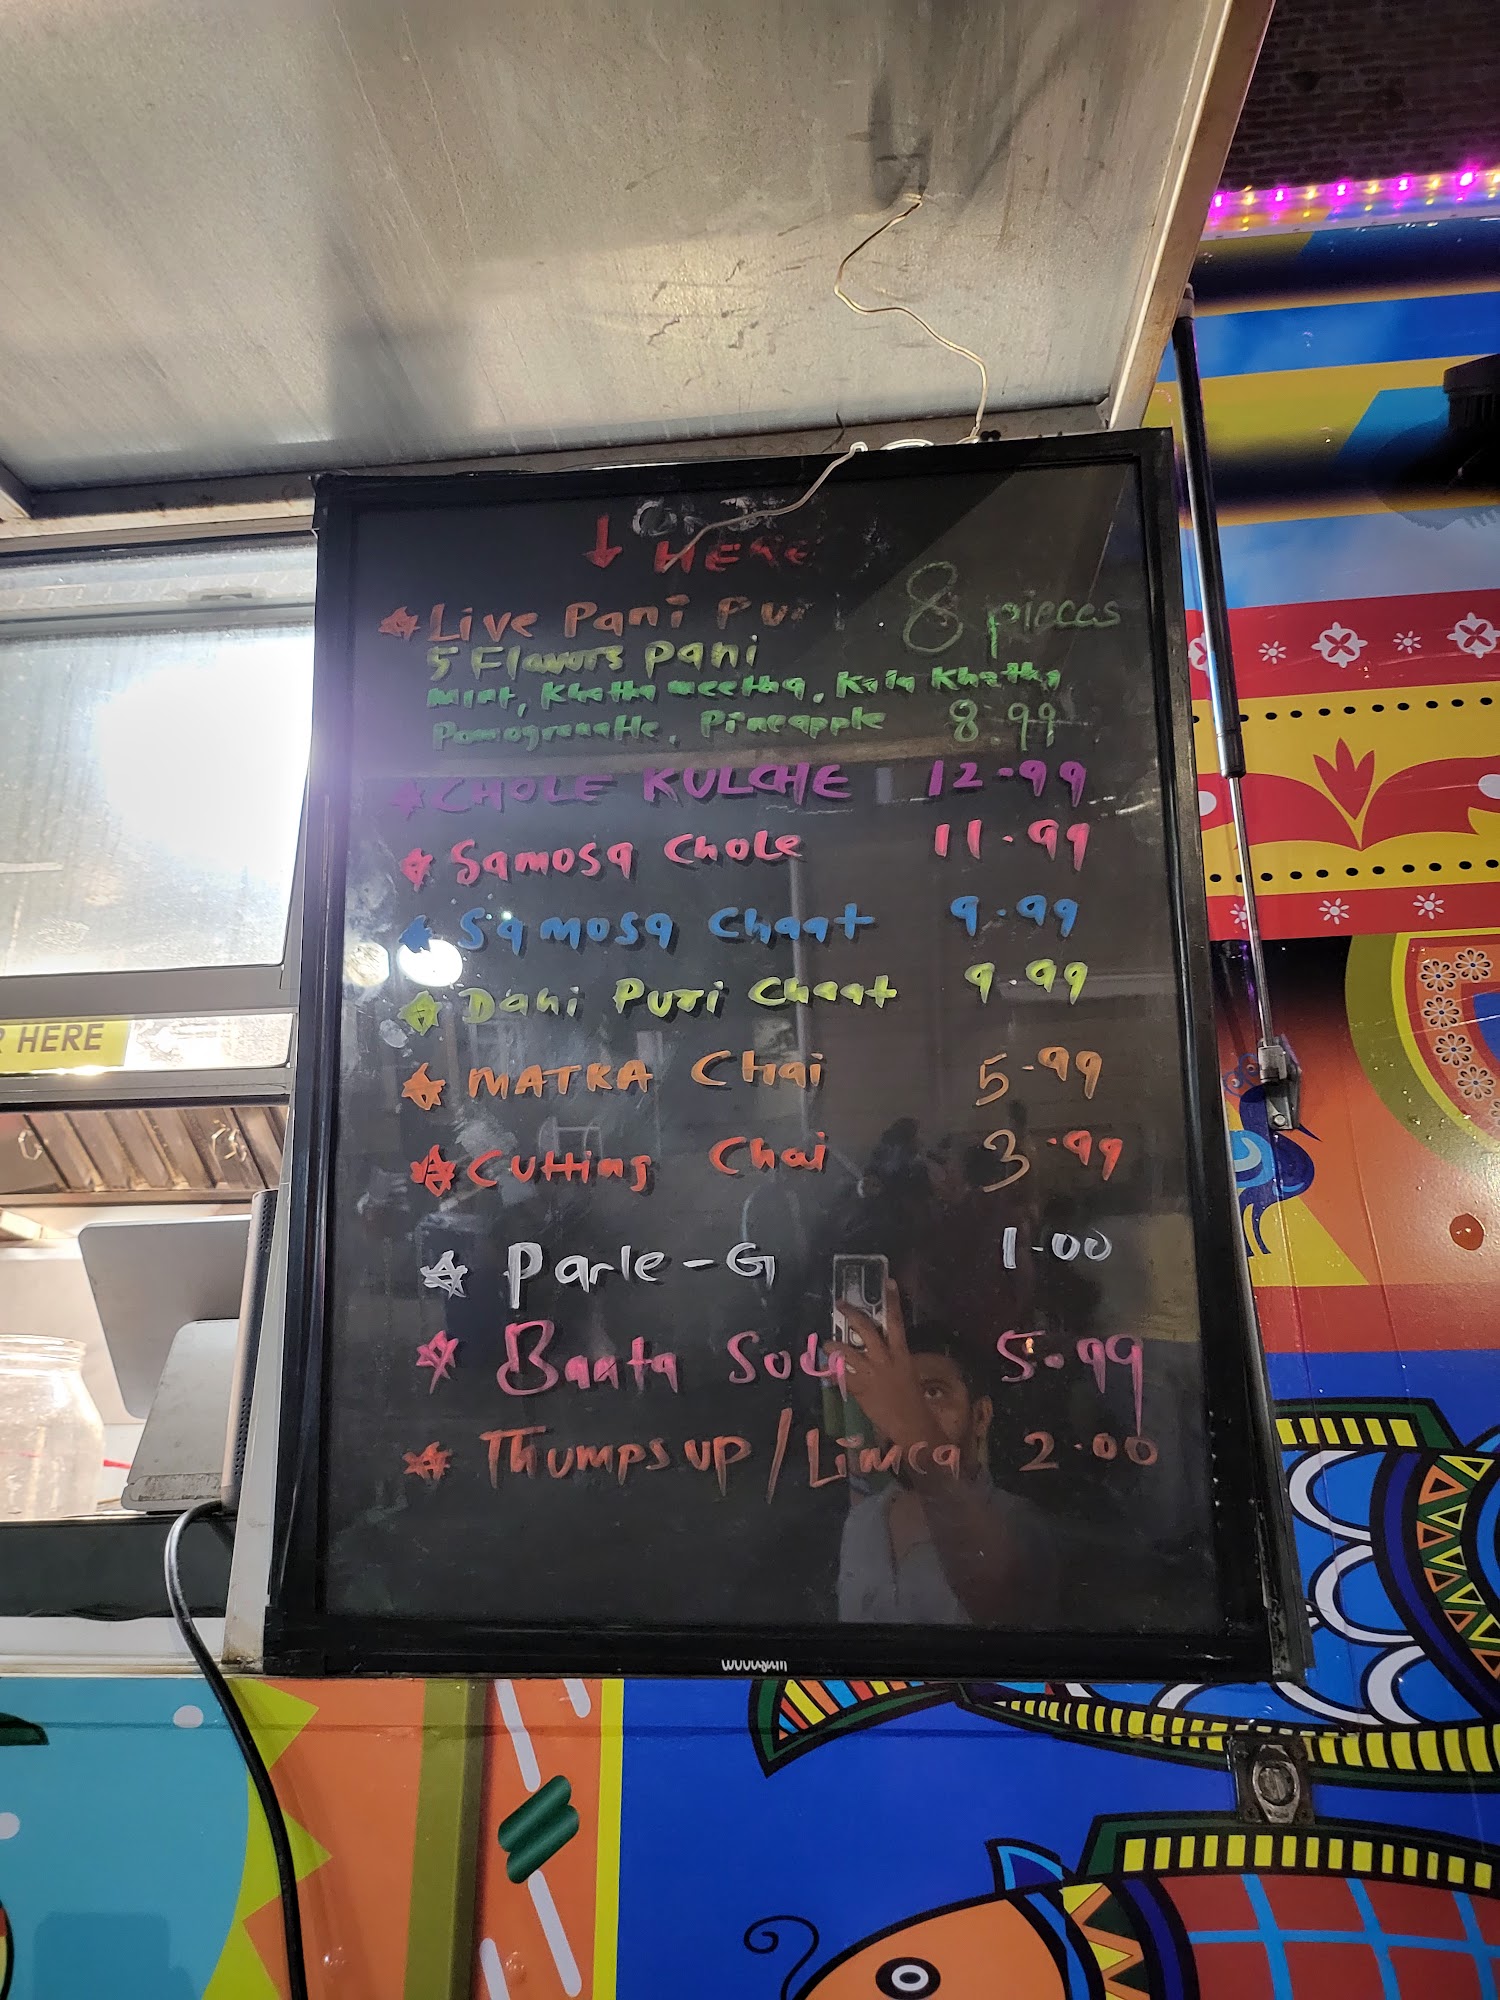 HERE
Live Pani Pu
8 pieces
5 Flavors Pani
Mint, Khatta meetha, Kala Khatta
Pomogranate, Pineapple 8.99
CHOLE KULCHE 12.99
Samosa Chole 11.99
Samosa Chaat 9.99
Dahi Puri Chaat 9.99
MATKA Chai 5.99
Cutting Chai 3.99
Parle-G 1.00
Banta Soda 5.99
Thumps up / Limca 2.00
R HERE